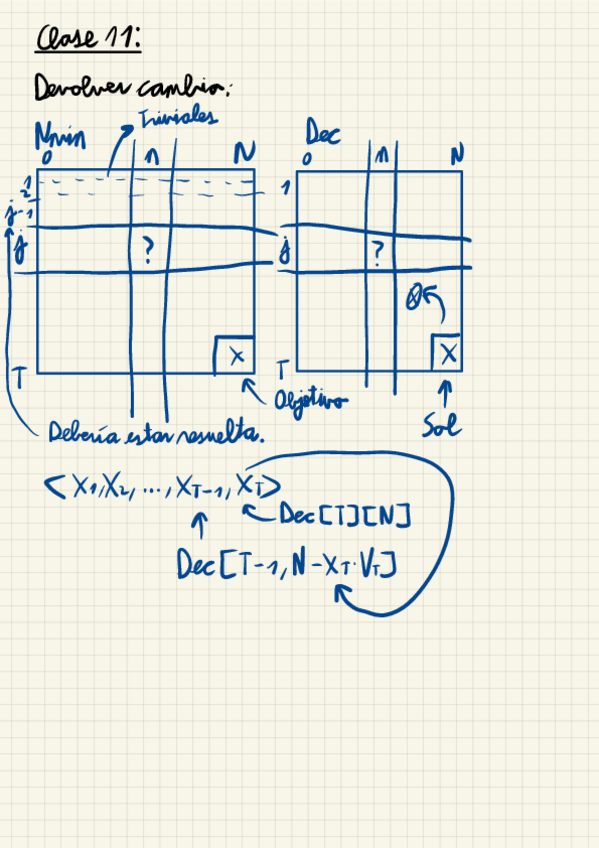 Clase 11:
Devolver cambio:
Triviales
Nmin
0 n N
1
2
j-1
j ?
X
T
Dec
0 n N
1
j ?
X
T
Objetivo
Sol
Debería estar resuelta.
<X1,X2,...,XT-1,XT>
Dec[T][N]
Dec[T-1,N-XT·VT]